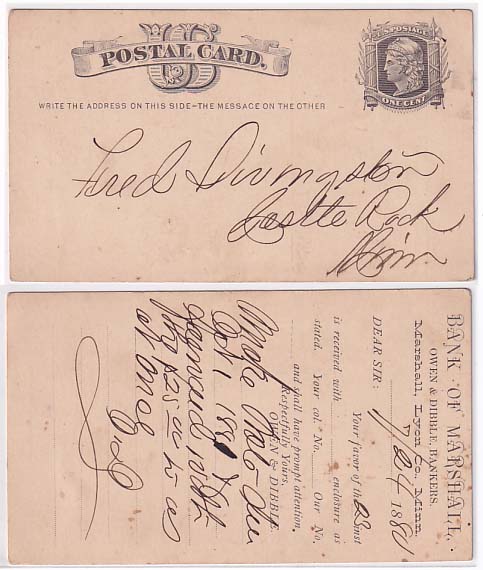 U.S. POSTAGE
POSTAL CARD.
US
ONE CENT
WRITE THE ADDRESS ON THIS SIDE–THE MESSAGE ON THE OTHER
Fred Livingston
Castle Rock
Minn
BANK OF MARSHALL.
OWEN & DIBBLE, BANKERS.
Marshall, Lyon Co., Minn.
188
DEAR SIR:
Your favor of the 22 inst
is received with enclosure as
stated. Your col. No. Our No.
and shall have prompt attention.
Respectfully Yours,
OWEN & DIBBLE.
Note due
Oct 1
at once
O&D